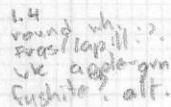 1.4
round wh.
frags lapilli
wk apple-grn
fuchsite? alt.